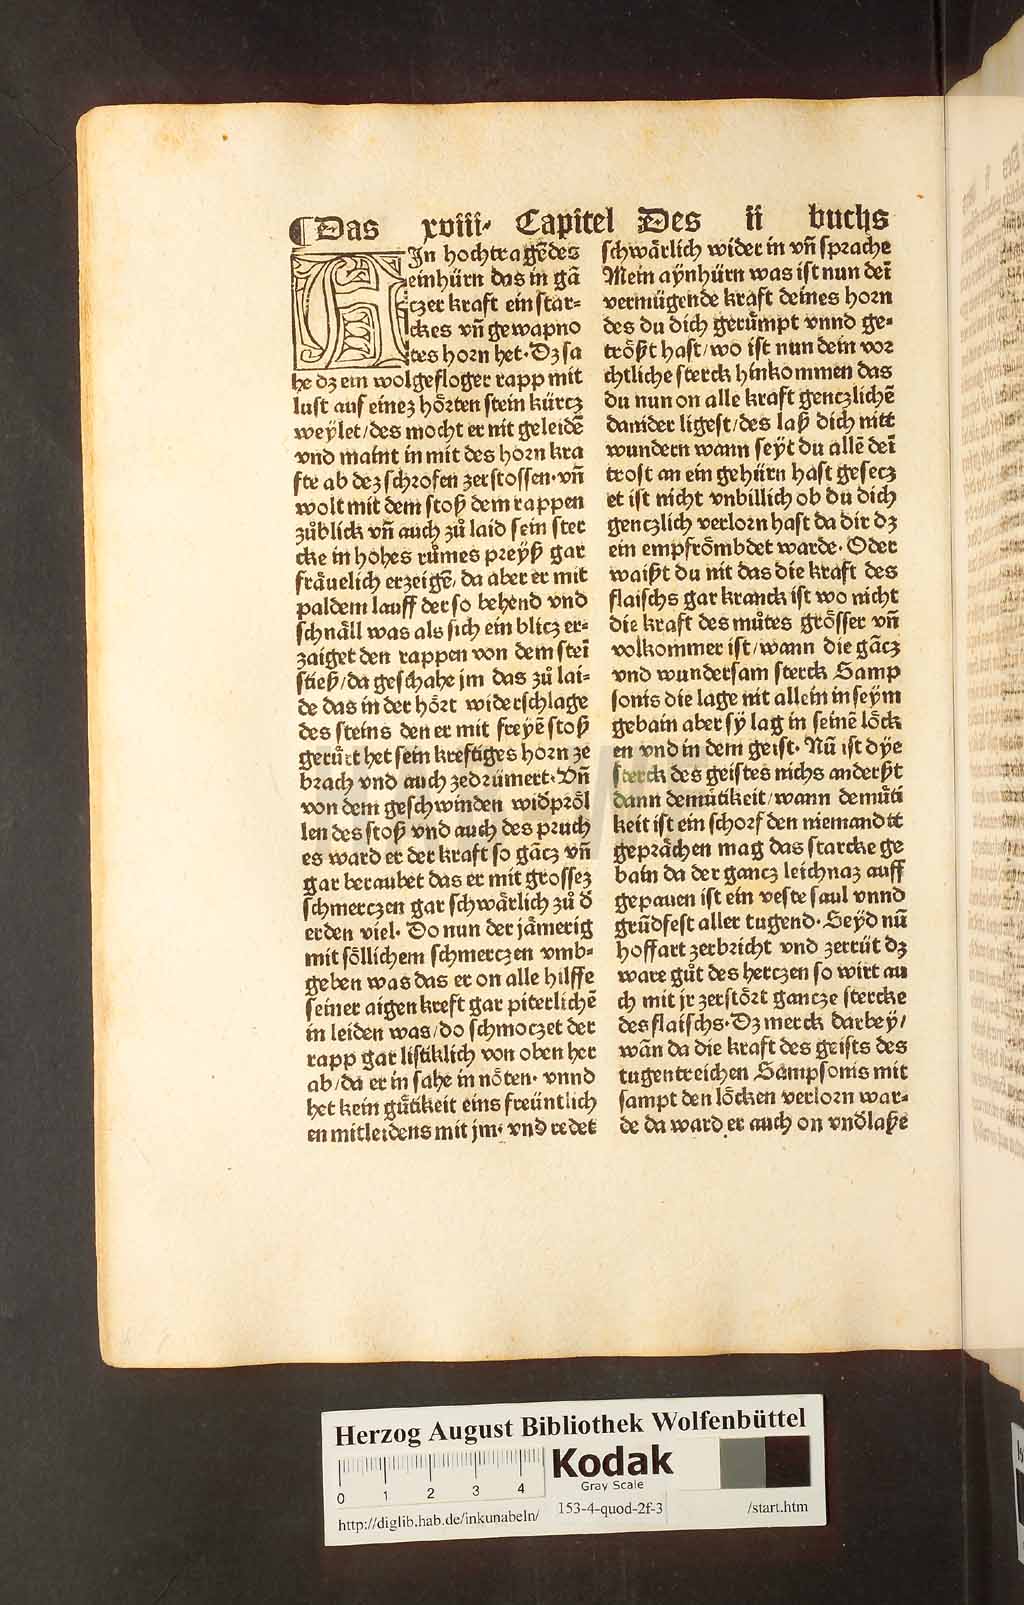 Das xviii· Capitel Des ii buchs
EJn hochtragẽdes
einhürn das in gã
czer kraft ein star⸗
ckes vñ gewapno
tes horn het· Dz sa
he dz ein wolgefloger rapp mit
lust auf einez hoͤrten stein kürcz
weylet/des mocht er nit geleidẽ
vnd maint in mit des horn kra
fte ab dez schrofen zerstossen· vñ
wolt mit dem stoß dem rappen
zuͦblick vñ auch zuͦ laid sein ster
cke in hohes ruͦmes preÿß gar
fraͤuelich erzeigẽ/ da aber er mit
paldem lauff der so behend vnd
schnaͤll was als sich ein blicz er⸗
zaiget den rappen von dem steī
stieß/da geschahe jm das zuͦ lai⸗
de das in der hoͤrt widerschlage
des steins den er mit freyẽ stoß
geruͤrt het sein kreftiges horn ze
brach vnd auch zedrümert· Vñ
von dem geschwinden widproͤl
len des stoß vnd auch des pruch
es ward er der kraft so gãcz vñ
gar beraubet das er mit grossez
schmerczen gar schwaͤrlich zuͦ ď
erden viel· Do nun der jaͤmerig
mit soͤllichem schmerczen vmb⸗
geben was das er on alle hilffe
seiner aigen kreft gar piterlichẽ
in leiden was/do schmoczet der
rapp gar listiklich von oben her
ab/da er in sahe in noͤten· vnnd
het kein guͤtikeit eins freüntlich
en mitleidens mit jm· vnd redet
schwaͤrlich wider in vñ sprache
Mein aÿnhürn was ist nun deī
vermügende kraft deines horn
des du dich geruͤmpt vnnd ge⸗
troͤßt hast/wo ist nun dein vor
chtliche sterck hinkommen das
du nun on alle kraft genczlichẽ
danider ligest/des laß dich nitt
wundern wann seÿt du allẽ deī
trost an ein gehürn hast gesecz
et ist nicht vnbillich ob du dich
genczlich verlorn hast da dir dz
ein empfroͤmbdet warde· Oder
waißt du nit das die kraft des
flaischs gar kranck ist wo nicht
die kraft des muͦtes groͤsser vñ
volkommer ist/wann die gãcz
vnd wundersam sterck Samp
sonis die lage nit allein in seÿm
gebain aber sÿ lag in seinẽ loͤck
en vnd in dem geist· Nũ ist dÿe
sterck des geistes nichs anderßt
dann demuͤtikeit/wann demuͤti
keit ist ein schorf den niemandtt
gepraͤchen mag das starcke ge
bain da der gancz leichnaz auff
gepauen ist ein veste saul vnnd
grũdfest aller tugend· Seÿd nũ
hoffart zerbricht vnd zerrüt dz
ware guͦt des herczen so wirt au
ch mit jr zerstoͤrt gancze stercke
des flaischs· Dz merck darbeÿ/
wãn da die kraft des geists des
tugentreichen Sampsonis mit
sampt den loͤcken verlorn war⸗
de da ward er auch on vnďlaße
Herzog August Bibliothek Wolfenbüttel
0 1 2 3 4
Kodak
Gray Scale
http://diglib.hab.de/inkunabeln/ 153-4-quod-2f-3 /start.htm